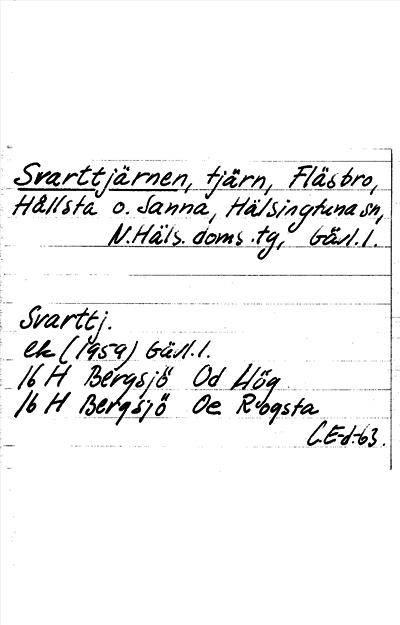 Svarttjärnen, tjärn, Fläsbro,
Hållsta o. Sanna, Hälsingtuna sn,
N. Häls. doms.tg, Gävl.l.
Svarttj.
ek (1959) Gävl.l.
16 H Bergsjö Od Hög
16 H Bergsjö Oe Rogsta
C.E-d-63.